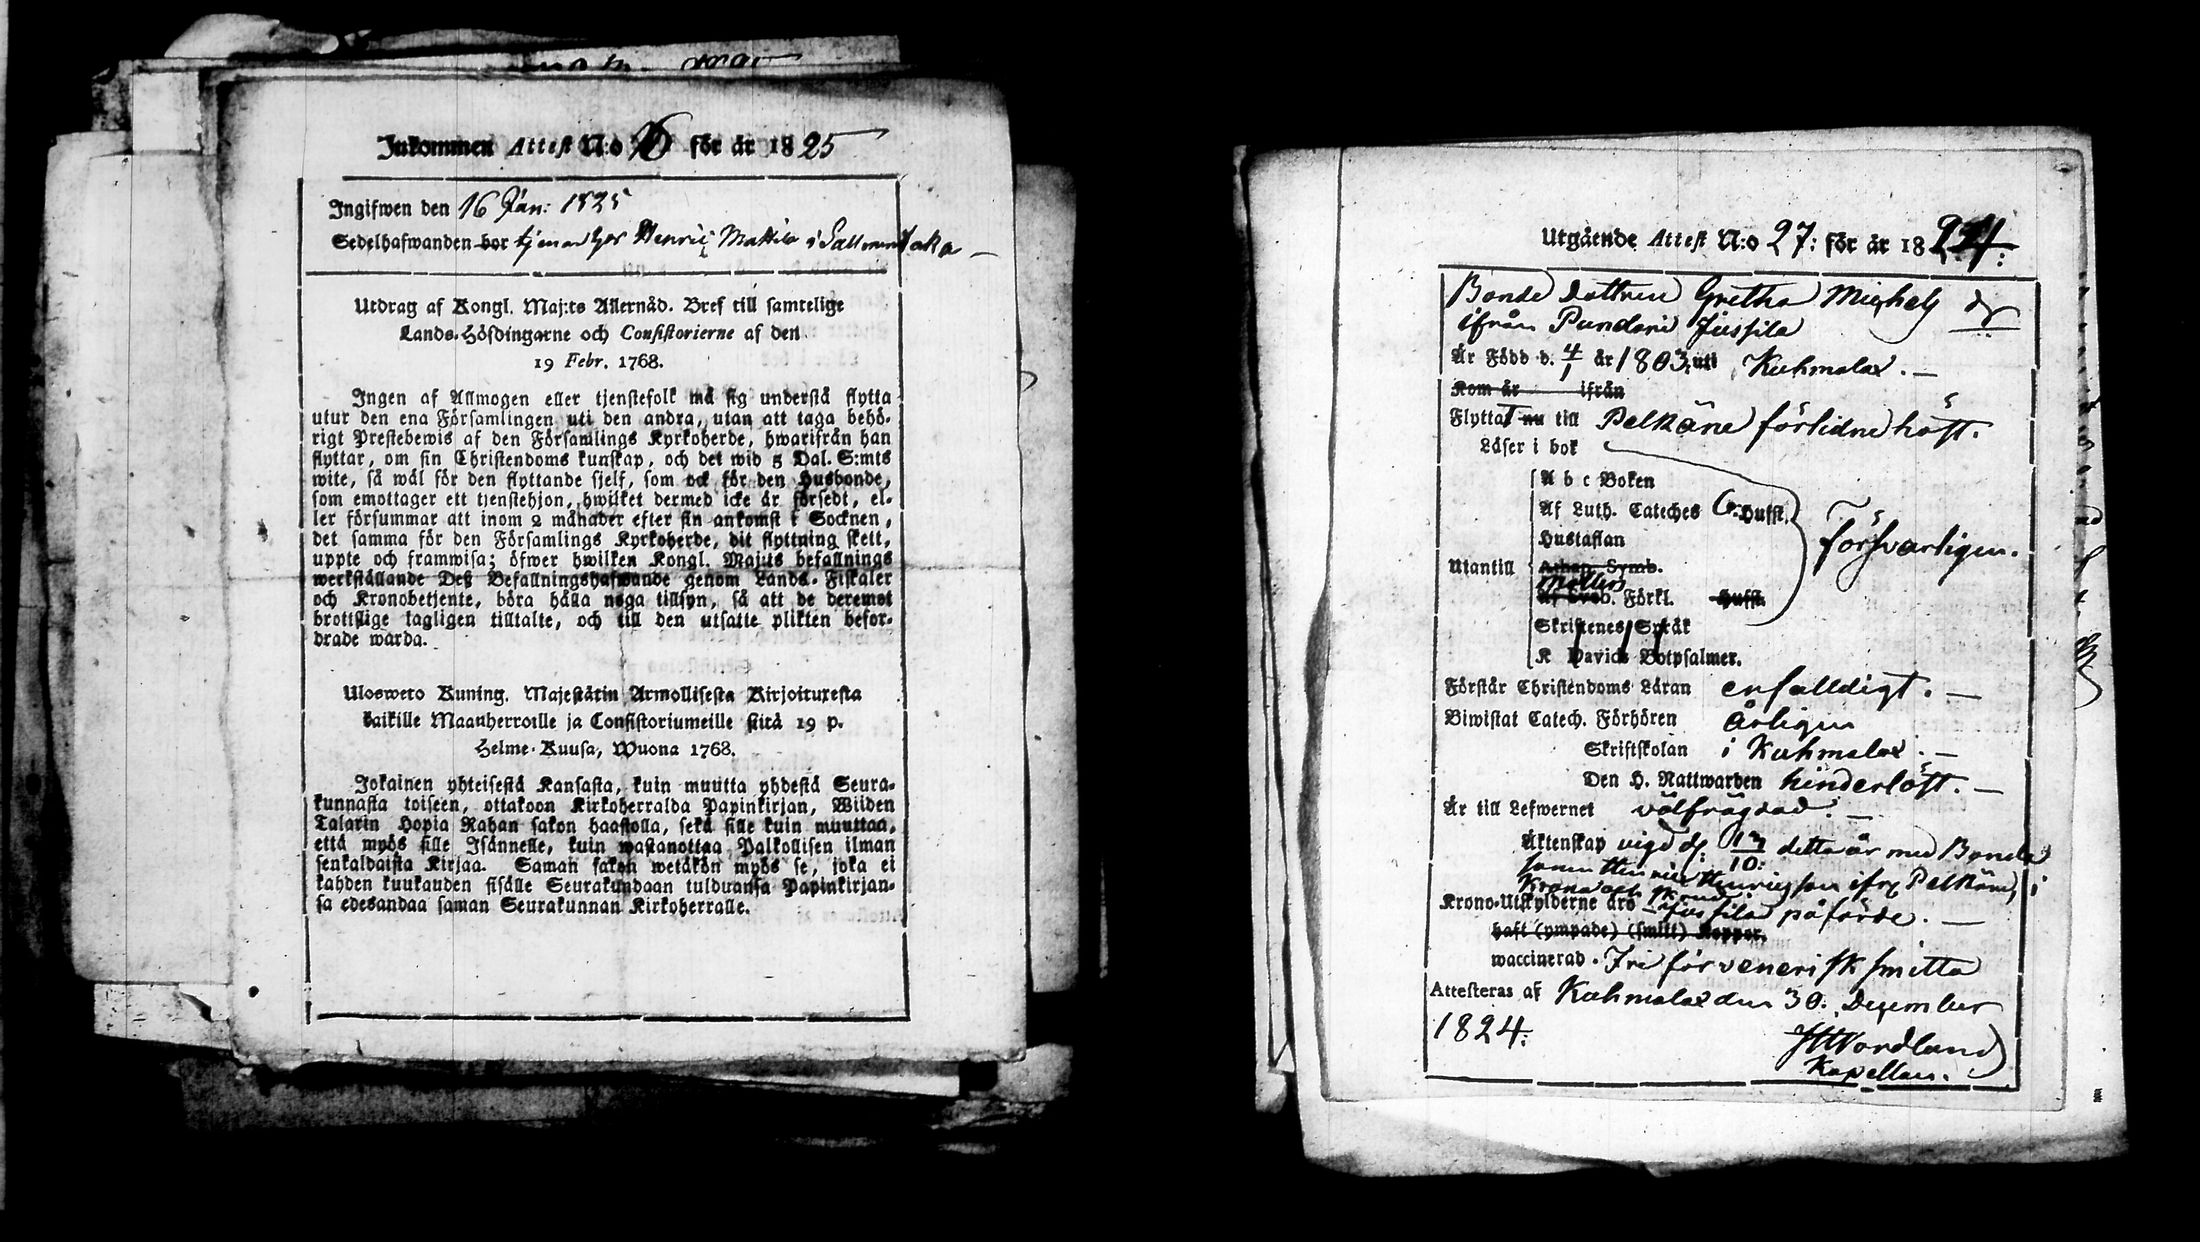 Inkommen Attest N:o 26 för år 1825
Ingifwen den 16 Jan: 1825
Sedelhafwanden bor tjenar hos Henric Mattila i Sallmentaka
Utdrag af Kongl. Maj:ts Allernåd. Bref till samtelige
Lands-Höfdingarne och Consistorierne af den
19 Febr. 1768.
Ingen af Allmogen eller tjenstefolk må sig understå flytta
utur den ena Församlingen uti den andra, utan att taga behö-
rigt Prestebewis af den Församlings Kyrkoherde, hwarifrån han
flyttar, om sin Christendoms kunskap, och det wid 5 Dal. S:mts
wite, så wäl för den flyttande sjelf, som ock för den Husbonde,
som emottager ett tjenstehjon, hwilket dermed icke är försedt, el-
ler försummar att inom 2 månader efter sin ankomst i Socknen,
det samma för den Församlings Kyrkoherde, dit flyttning skett,
uppte och framwisa; öfwer hwilken Kongl. Maj:ts befallnings
werkställande Deß Befallningshafwande genom Lands-Fiskaler
och Kronobetjente, böra hålla noga tillsyn, så att de deremot
brottslige lagligen tilltalte, och till den utsatte plikten befor-
drade warda.
Ulosweto Kuning. Majestätin Armollisesta Kirjoituxesta
kaikille Maanherroille ja Consistoriumeille siitä 19 p.
Helme-Kuusa, Wuona 1768.
Jokainen yhteisestä Kansasta, kuin muutta yhdestä Seura-
kunnasta toiseen, ottakoon Kirkoherralda Papinkirjan, Wiiden
Talarin Hopia Rahan sakon haastolla, sekä sille kuin muuttaa,
että myös sille Isännelle, kuin wastanottaa Palkollisen ilman
senkaldaista Kirjaa. Saman sakon wetäkön myös se, joka ei
kahden kuukauden sisälle Seurakundaan tulduansa Papinkirjan-
sa edesandaa saman Seurakunnan Kirkoherralle.
Utgående Attest N:o 27: för år 1824:
Bonde dottren Gretha Michels dr
ifrån Pundari Jussila
Är Född d. 4/1 år 1803 uti Kuhmalax.
Kom år ifrån
Flyttat nu till Pelkäne förlidne höst.
Läser i bok
A b c Boken
Af Luth. Cateches 6 Hufst.
Hustaflan
Utantill Athan. Symb.
Möllers
Af Sveb. Förkl. Hufst.
Skriftenes Språk
K Davids Botpsalmer.
Försvarligen.
Förstår Christendoms Läran enfalldigt.
Biwistat Catech. Förhören årligen
Skriftskolan i Kuhmalax.
Den H. Nattwarden hinderlöst.
Är till Lefwernet välfrägdad.
Äktenskap vigd d: 13/10: detta år med Bonde
sonen Henric Henricsson ifr: Pelkäne, i
Krono-Utskylderne äro Jussila påförde.
haft (ympade) (smitt) Koppor.
waccinerad. Fri för venerisk smitta
Attesteras af Kuhmalax den 30. December
1824.
Nordlund
Kapellan.